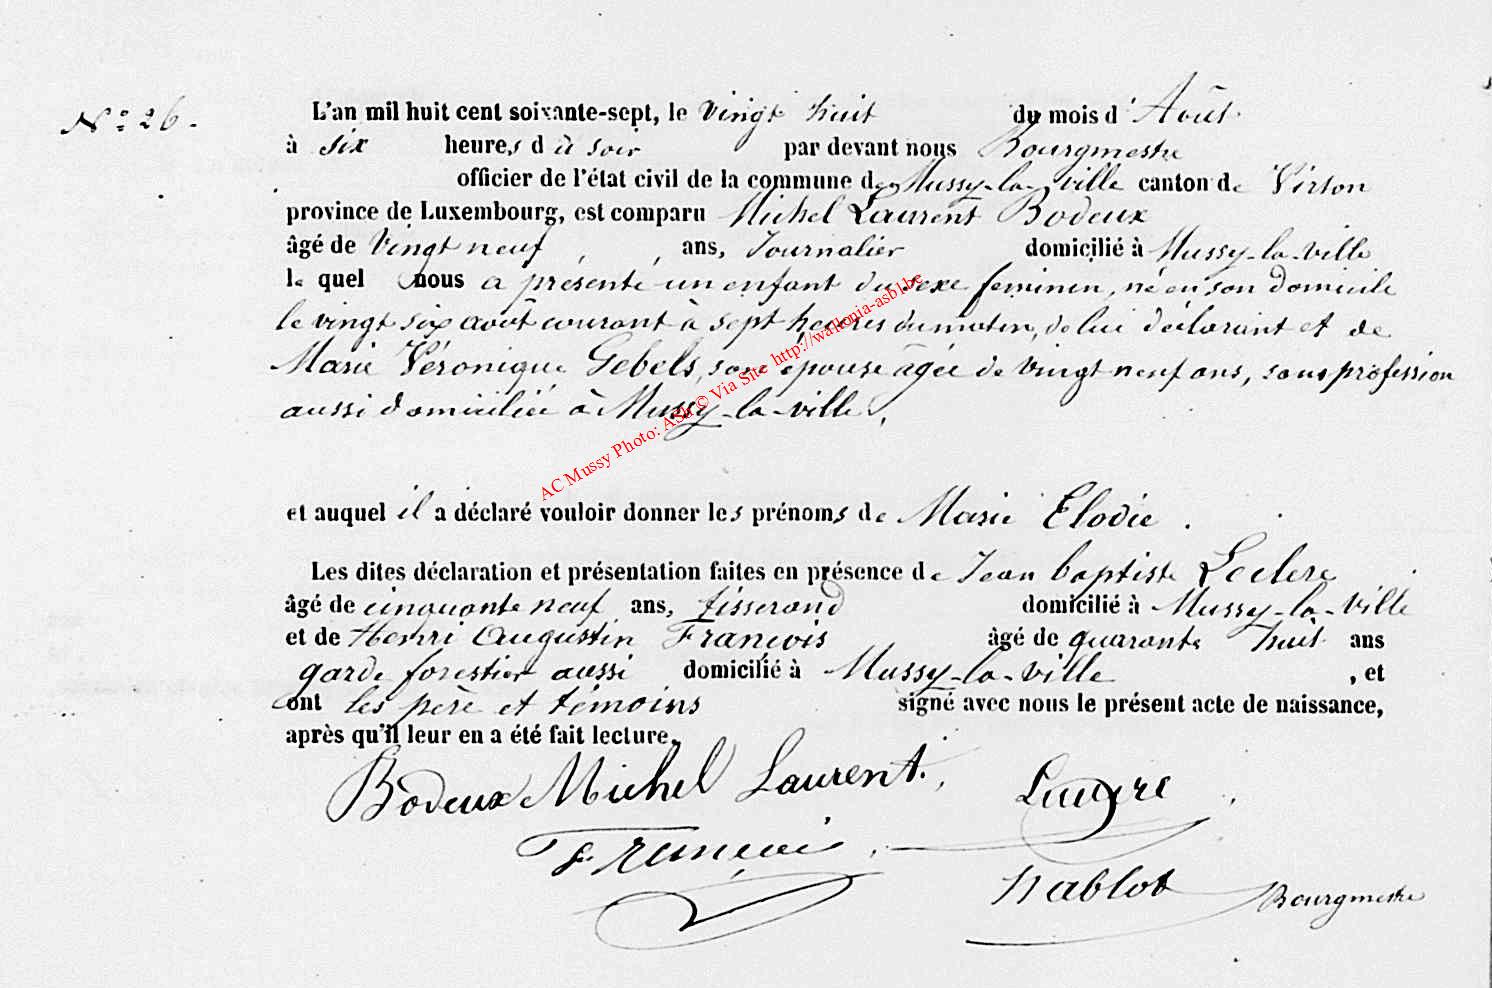 N° 26.
L'an mil huit cent soixante-sept, le vingt huit du mois d'Août
à six heures du soir par devant nous Bourgmestre
officier de l'état civil de la commune de Mussy-la-ville canton de Virton
province de Luxembourg, est comparu Michel Laurent Bodeux
âgé de vingt neuf ans, Journalier domicilié à Mussy-la-ville
le quel nous a présenté un enfant du sexe feminin, né en son domicile
le vingt six août courant à sept heures du matin, de lui déclarant et de
Marie Véronique Gebels, son épouse âgée de vingt neuf ans, sans profession
aussi domiciliée à Mussy-la-ville.
AC Mussy Photo: ASb © Via Site http://wallonia-asbl.be
et auquel il a déclaré vouloir donner les prénoms de Marie Elodie.
Les dites déclaration et présentation faites en présence de Jean baptiste Leclere
âgé de cinquante neuf ans, tisserand domicilié à Mussy-la-ville
et de Henri Augustin François âgé de quarante huit ans
garde forestier aussi domicilié à Mussy-la-ville, et
ont les père et témoins signé avec nous le présent acte de naissance,
après qu'il leur en a été fait lecture.
Bodeux Michel Laurent.
François
Nablot Bourgmestre